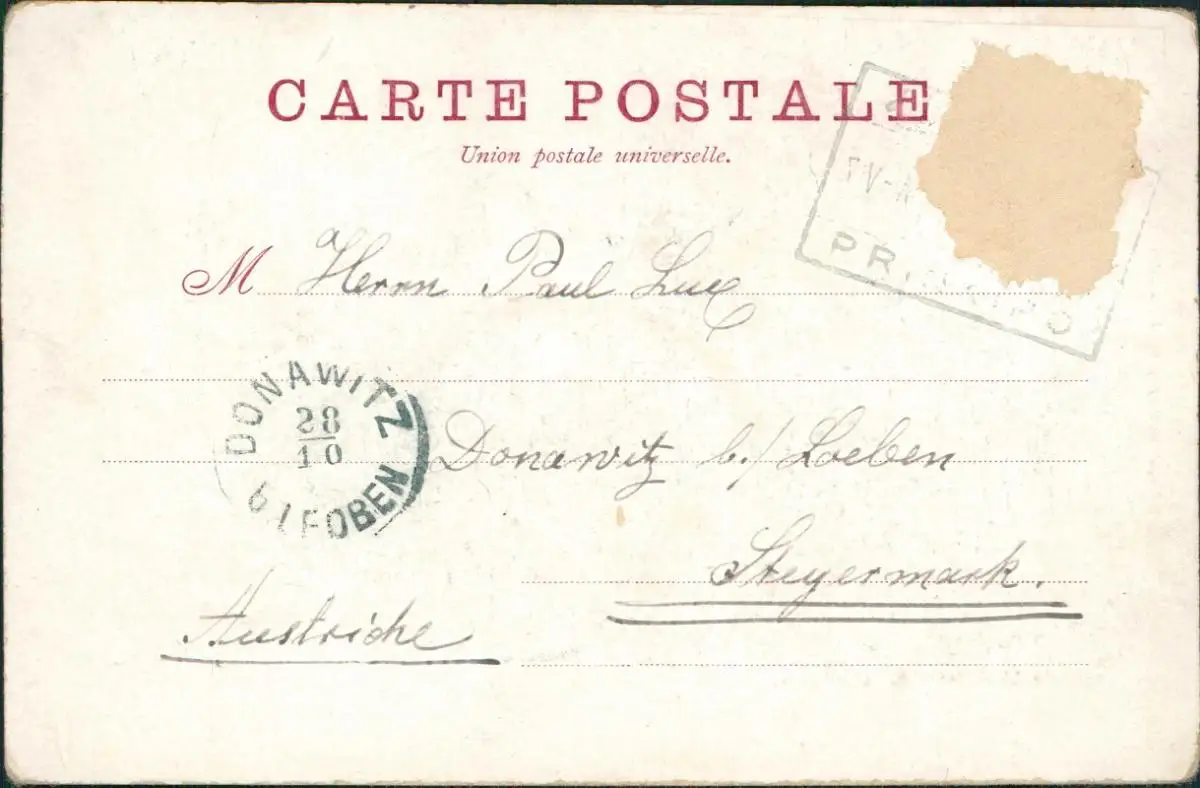 CARTE POSTALE
Union postale universelle.
M Herrn Paul Lux
DONAWITZ
28
10
b LEOBEN
Donawitz b./ Loeben
Steyermark.
Austriche